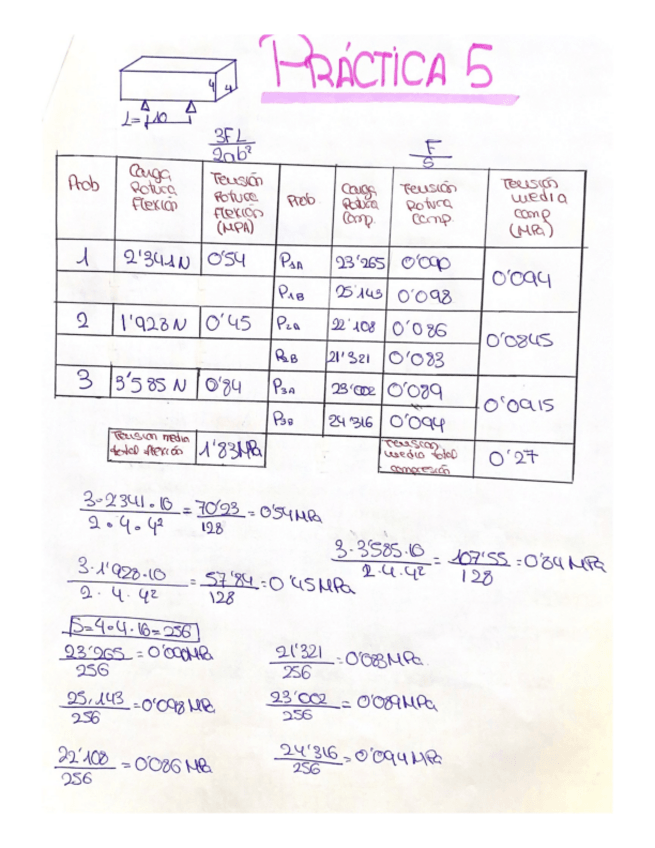 PRÁCTICA 5
4 4
L= 10
3FL
2ab²
F
S
Prob
Carga Rotura Flexión
Tensión Rotura Flexión (MPA)
Prob
Carga Rotura Comp.
Tensión Rotura Comp.
Tensión media comp (MPa)
1 2'341 N 0'54 P1A 23'265 0'090 0'094
P1B 25'143 0'098
2 1'928 N 0'45 P2A 22'108 0'086 0'0845
P2B 21'321 0'083
3 3'585 N 0'84 P3A 23'002 0'089 0'0915
P3B 24'316 0'094
Tensión media total flexión 1'83MPa
Tensión media total compresión 0'27
3·2341·10 / 2·4·4² = 70'23 / 128 = 0'54MPa
3·3'585·10 / 2·4·4² = 107'55 / 128 = 0'84 MPa
3·1'928·10 / 2·4·4² = 57'84 / 128 = 0'45MPa
S=4·4·16=256
23'265 / 256 = 0'090MPa
21'321 / 256 = 0'083MPa.
25'143 / 256 = 0'098 MPa
23'002 / 256 = 0'089MPa
22'108 / 256 = 0'086 MPa
24'316 / 256 = 0'094MPa